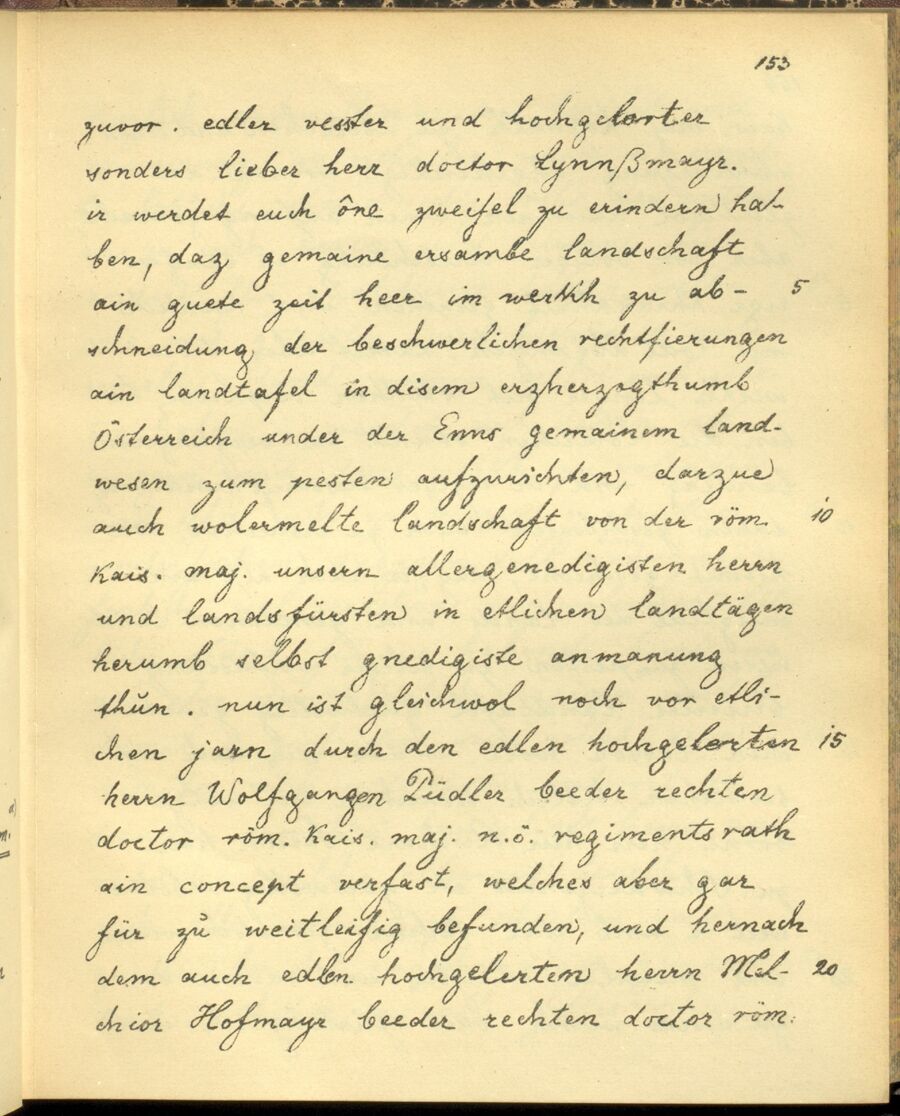 153
zuvor. edler vesster und hochgelerter
sonders lieber herr doctor Lynnßmayr.
ir werdet euch ône zweifel zu erindern ha-
ben, daz gemaine ersambe landschaft
ain guete zeit heer im werkh zu ab- 5
schneidung der beschwerlichen rechtfierungen
ain landtafel in disem erzherzogthumb
Österreich under der Enns gemainem land-
wesen zum pesten aufzurichten, darzue
auch wolermelte landschaft von der röm. 10
Kais. maj. unsern allergenedigisten herrn
und landsfürsten in etlichen landtägen
herumb selbst gnedigiste anmanung
thŭn. nun ist gleichwol noch vor etli-
chen jarn durch den edlen hochgelerten 15
herrn Wolfgangen Püdler beeder rechten
doctor röm. Kais. maj. n.ö. regimentsrath
ain concept verfast, welches aber gar
für zů weitleifig befunden, und hernach
dem auch edlen hochgelerten herrn Mel- 20
chior Hofmayr beeder rechten doctor röm.